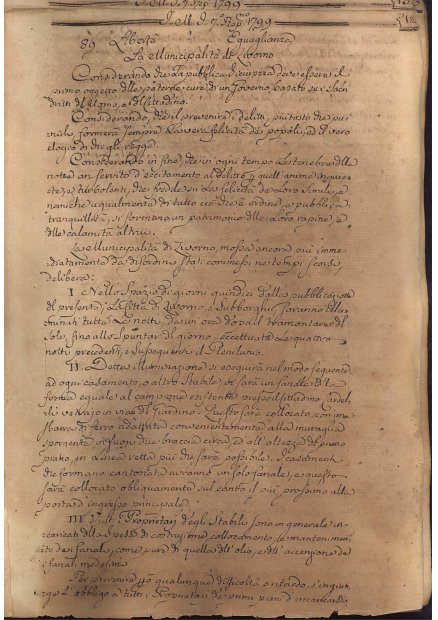 89 Libertà Eguaglianza
La Municipalità di Livorno
Considerando che la pubblica sicurezza dev'essere il
primo oggetto delle paterne cure di un Governo, basato su i Santi
dritti del Uomo, e del Cittadino.
Considerando, che il prevenire i delitti, piuttosto che pu-
nirli formerà sempre la vera felicità dei popoli, ed il vero
elogio di chi gli regge.
Considerando in fine, che in ogni tempo le tenebre della
notte an servito d'eccitamento al delitto p. quell'anime inquie-
te, e turbolenti, che fredde su la felicità de Loro Simili, e
nemiche ugualmente di tutto ciò che è ordine, e pubblica
tranquillità, si formano un patrimonio delle Loro rapine, e
delle calamità altrui.
La Municipalità di Livorno, mossa ancora più imme-
diatamente da disordini stati commessi ne tempi scorsi,
delibera:
I. Nello Spazio di giorni quindici dalla pubblicazione
del presente, la Città di Livorno, e Subborghi saranno illu-
minati tutte le notti, da un ora dopo il tramontare del
Sole, fino allo Spuntar del giorno, eccettuate le quattro
notti precedenti, e susseguenti il Plenilunio.
II. Detta illuminazione si eseguirà nel modo seguente
ad ogni casamento, o altro Stabile, vi sarà un fanale della
forma eguale al campione esistente presso il Cittadino
vetrajo in via del Giardino. Questo sarà collocato con una
sbarra di ferro adattata convenientemente alla muraglia
sporgente in fuori due braccia circa, ed all'altezza del primo
piano, in Linea retta più che sarà possibile. I casamenti
che formano cantonata avranno un solo fanale, e questo
sarà collocato obliquamente sul canto il più prossimo alla
porta d'ingresso principale.
III. Tutti i Proprietarj degli Stabili sono in generale in-
caricati della Spesa di costruzione, collocamento, e mantenimen-
to dei fanali, come pure di quella dell'olio, e dell'accensione de
i fanali medesimi.
Per prevenire p. qualunque difficoltà o ritardo, s'ingiun-
ge l'obbligo a tutti i Proprietarj de primi piani d'incaricarsi